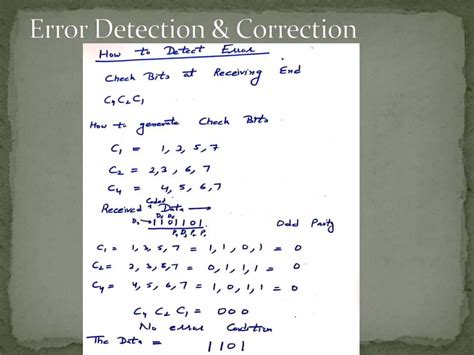 Error Detection & Correction
How to Detect Error
Check Bits at Receiving End
C4 C2 C1
How to generate Check Bits
C1 = 1, 3, 5, 7
C2 = 2, 3, 6, 7
C4 = 4, 5, 6, 7
Coded
Received Data →
1101101 Odd Parity
C1 = 1, 3, 5, 7 = 1, 1, 0, 1 = 0
C2 = 2, 3, 6, 7 = 0, 1, 1, 1 = 0
C4 = 4, 5, 6, 7 = 1, 0, 1, 1 = 0
C4 C2 C1 = 000
No error Condition
The Data = 1101